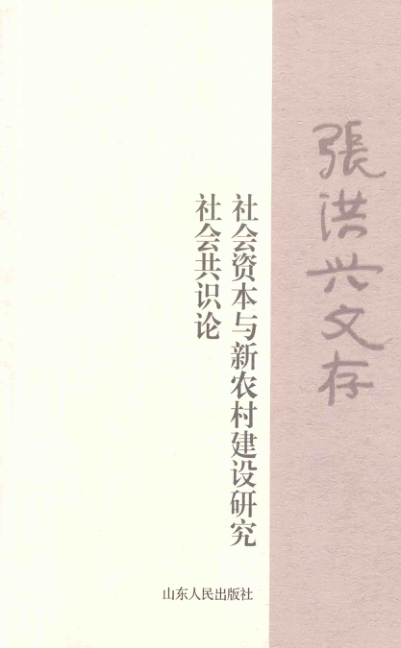 張洪兴文存
社会资本与新农村建设研究
社会共识论
山东人民出版社